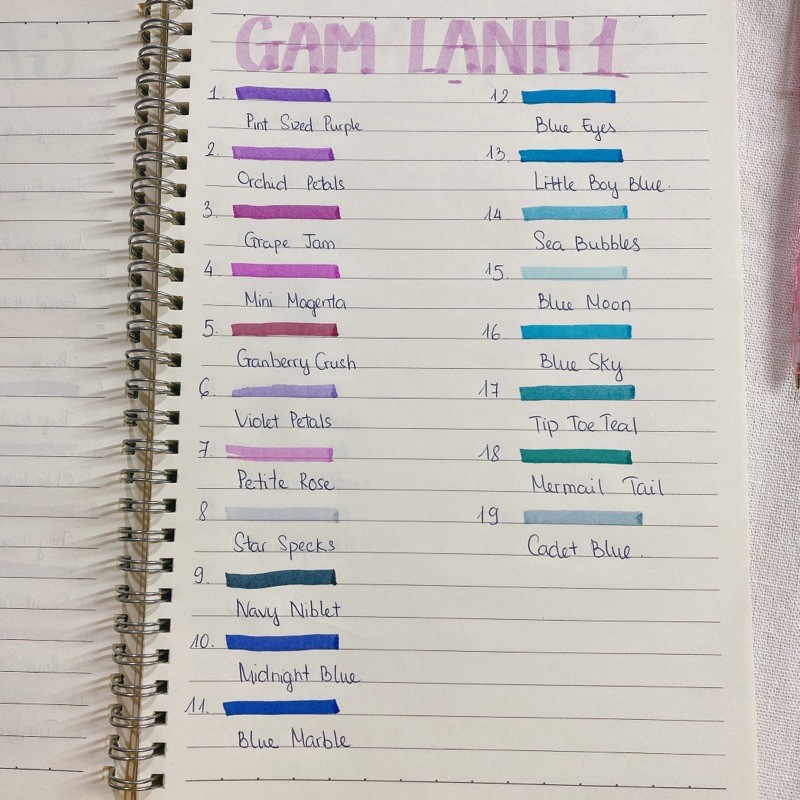 GAM LẠNH 1
1.
Pint Sized Purple
2.
Orchid Petals
3.
Grape Jam
4.
Mini Magenta
5.
Granberry Crush
6.
Violet Petals
7.
Petite Rose
8
Star Specks
9.
Navy Niblet
10.
Midnight Blue
11.
Blue Marble
12
Blue Eyes
13.
Little Boy Blue.
14
Sea Bubbles
15.
Blue Moon
16
Blue Sky
17
Tip Toe Teal
18
Mermail Tail
19
Cadet Blue.